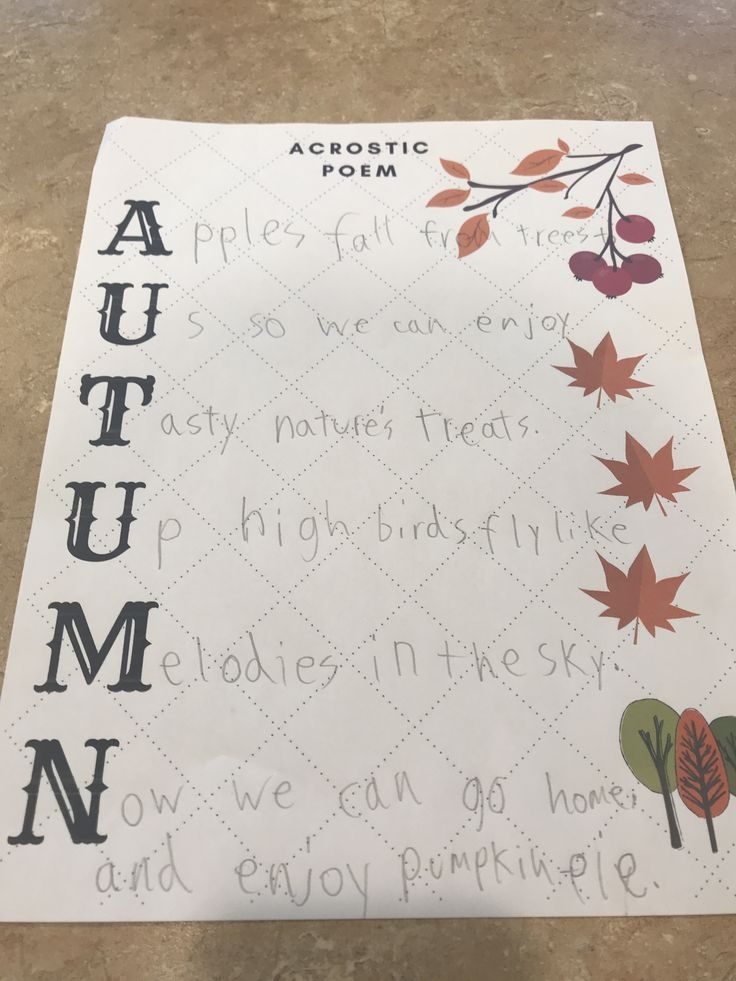 ACROSTIC
POEM
Apples fall from trees
Us so we can enjoy
Tasty nature's treats.
Up high birds fly like
Melodies in the sky.
Now we can go home
and enjoy pumpkin pie.